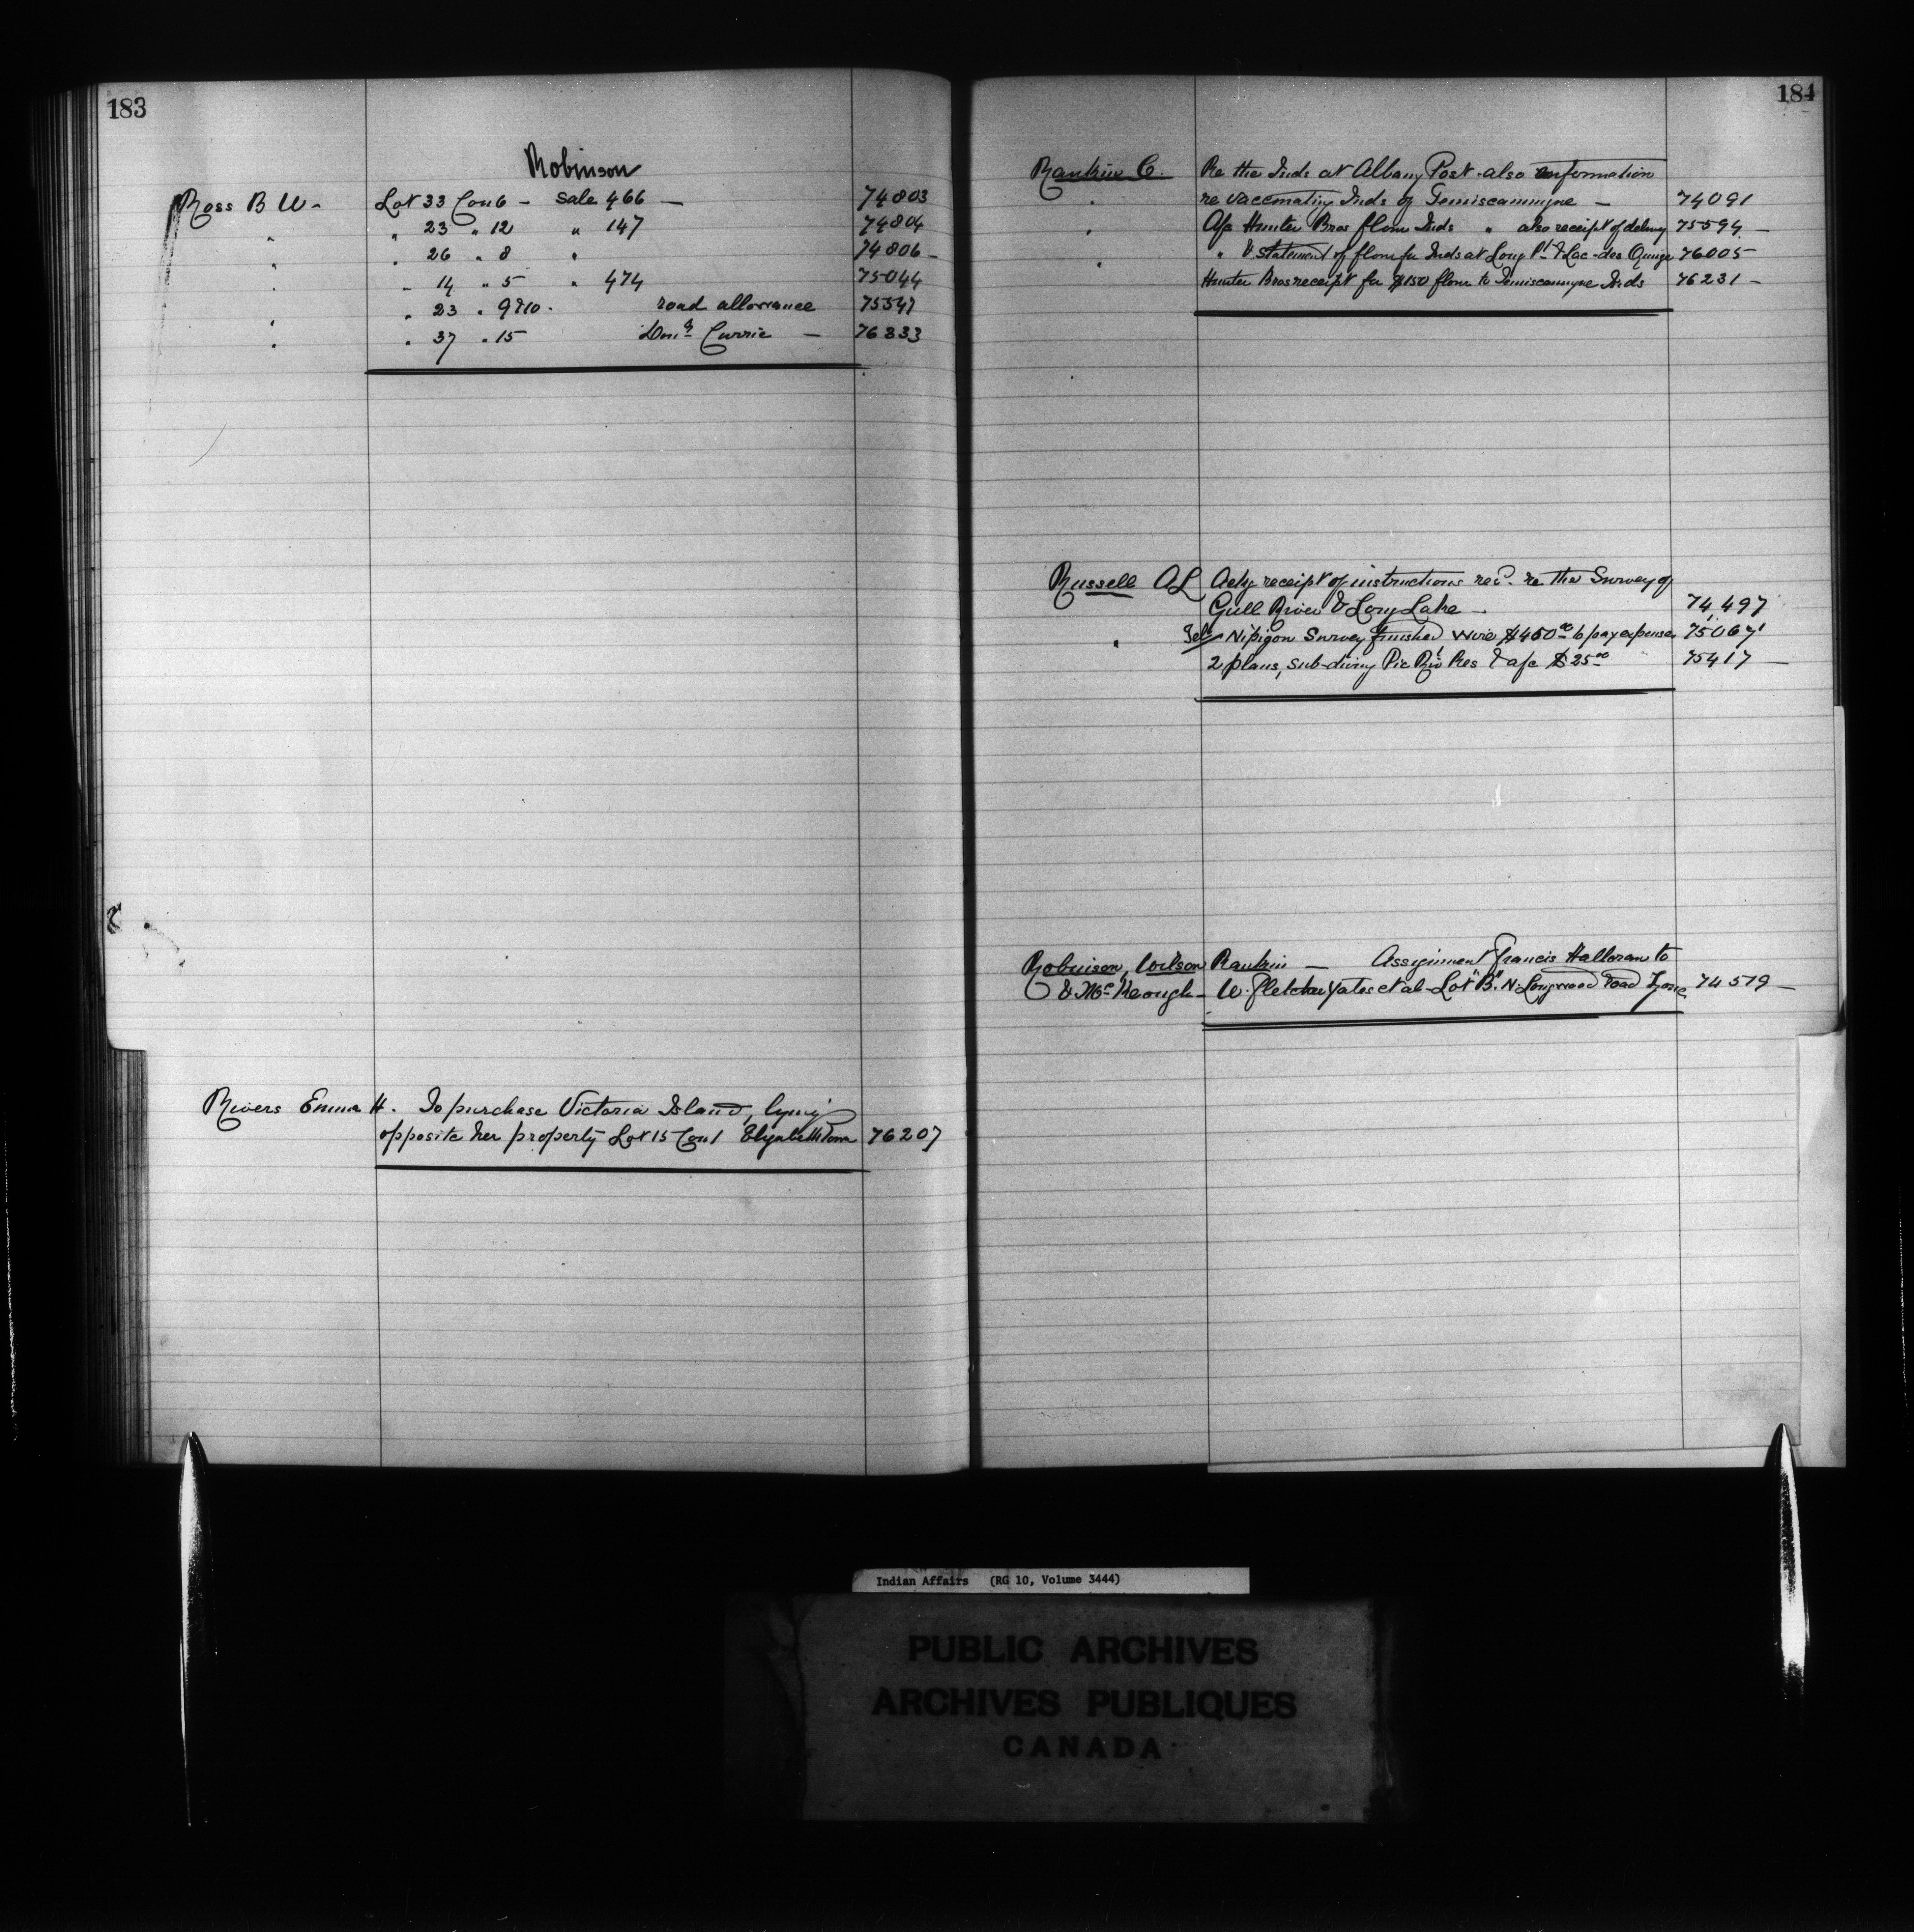 183
Robinson
Ross B W - Lot 33 Con 6 - Sale 466 — 74803
" " 23 " 12 " 147 74804
" 26 " 8 " 74806 -
" " 14 " 5 " 474 75044
" 23 " 9 & 10 . road allowance 75547
" " 37 " 15 Don.d Currie — 76333
Rivers Emma H. To purchase Victoria Island, lying
opposite her property Lot 15 Con 1 Elizabethtown 76207
184
Rankin C. Re the Inds at Albany Post - also information
" re vaccinating Inds of Temiscamingue — 74091
" A/c Hunter Bros flour Inds " also receipt of delivery 75594 -
" " & Statement of flour for Inds at Long Pt & Lac-des Quinze 76005
Hunter Bros receipt for $150 flour to Temiscamingue Inds 76231 -
Russell A L Ackg receipt of instructions rec.d re the Survey of
Gull River & Long Lake - 74,497
" Tel Nipigon Survey finished wire $450.00 to pay expenses 75067
2 plans, sub-divng Pic Riv Res & a/c $25.00 75417 —
Robinson, Wilson Rankin — Assignment Francis Halloran to
& McKeough - W. Fletcher Yates et al - Lot "B" N. Longwood Road Zone 74579 —
Indian Affairs (RG 10, Volume 3444)
PUBLIC ARCHIVES
ARCHIVES PUBLIQUES
CANADA